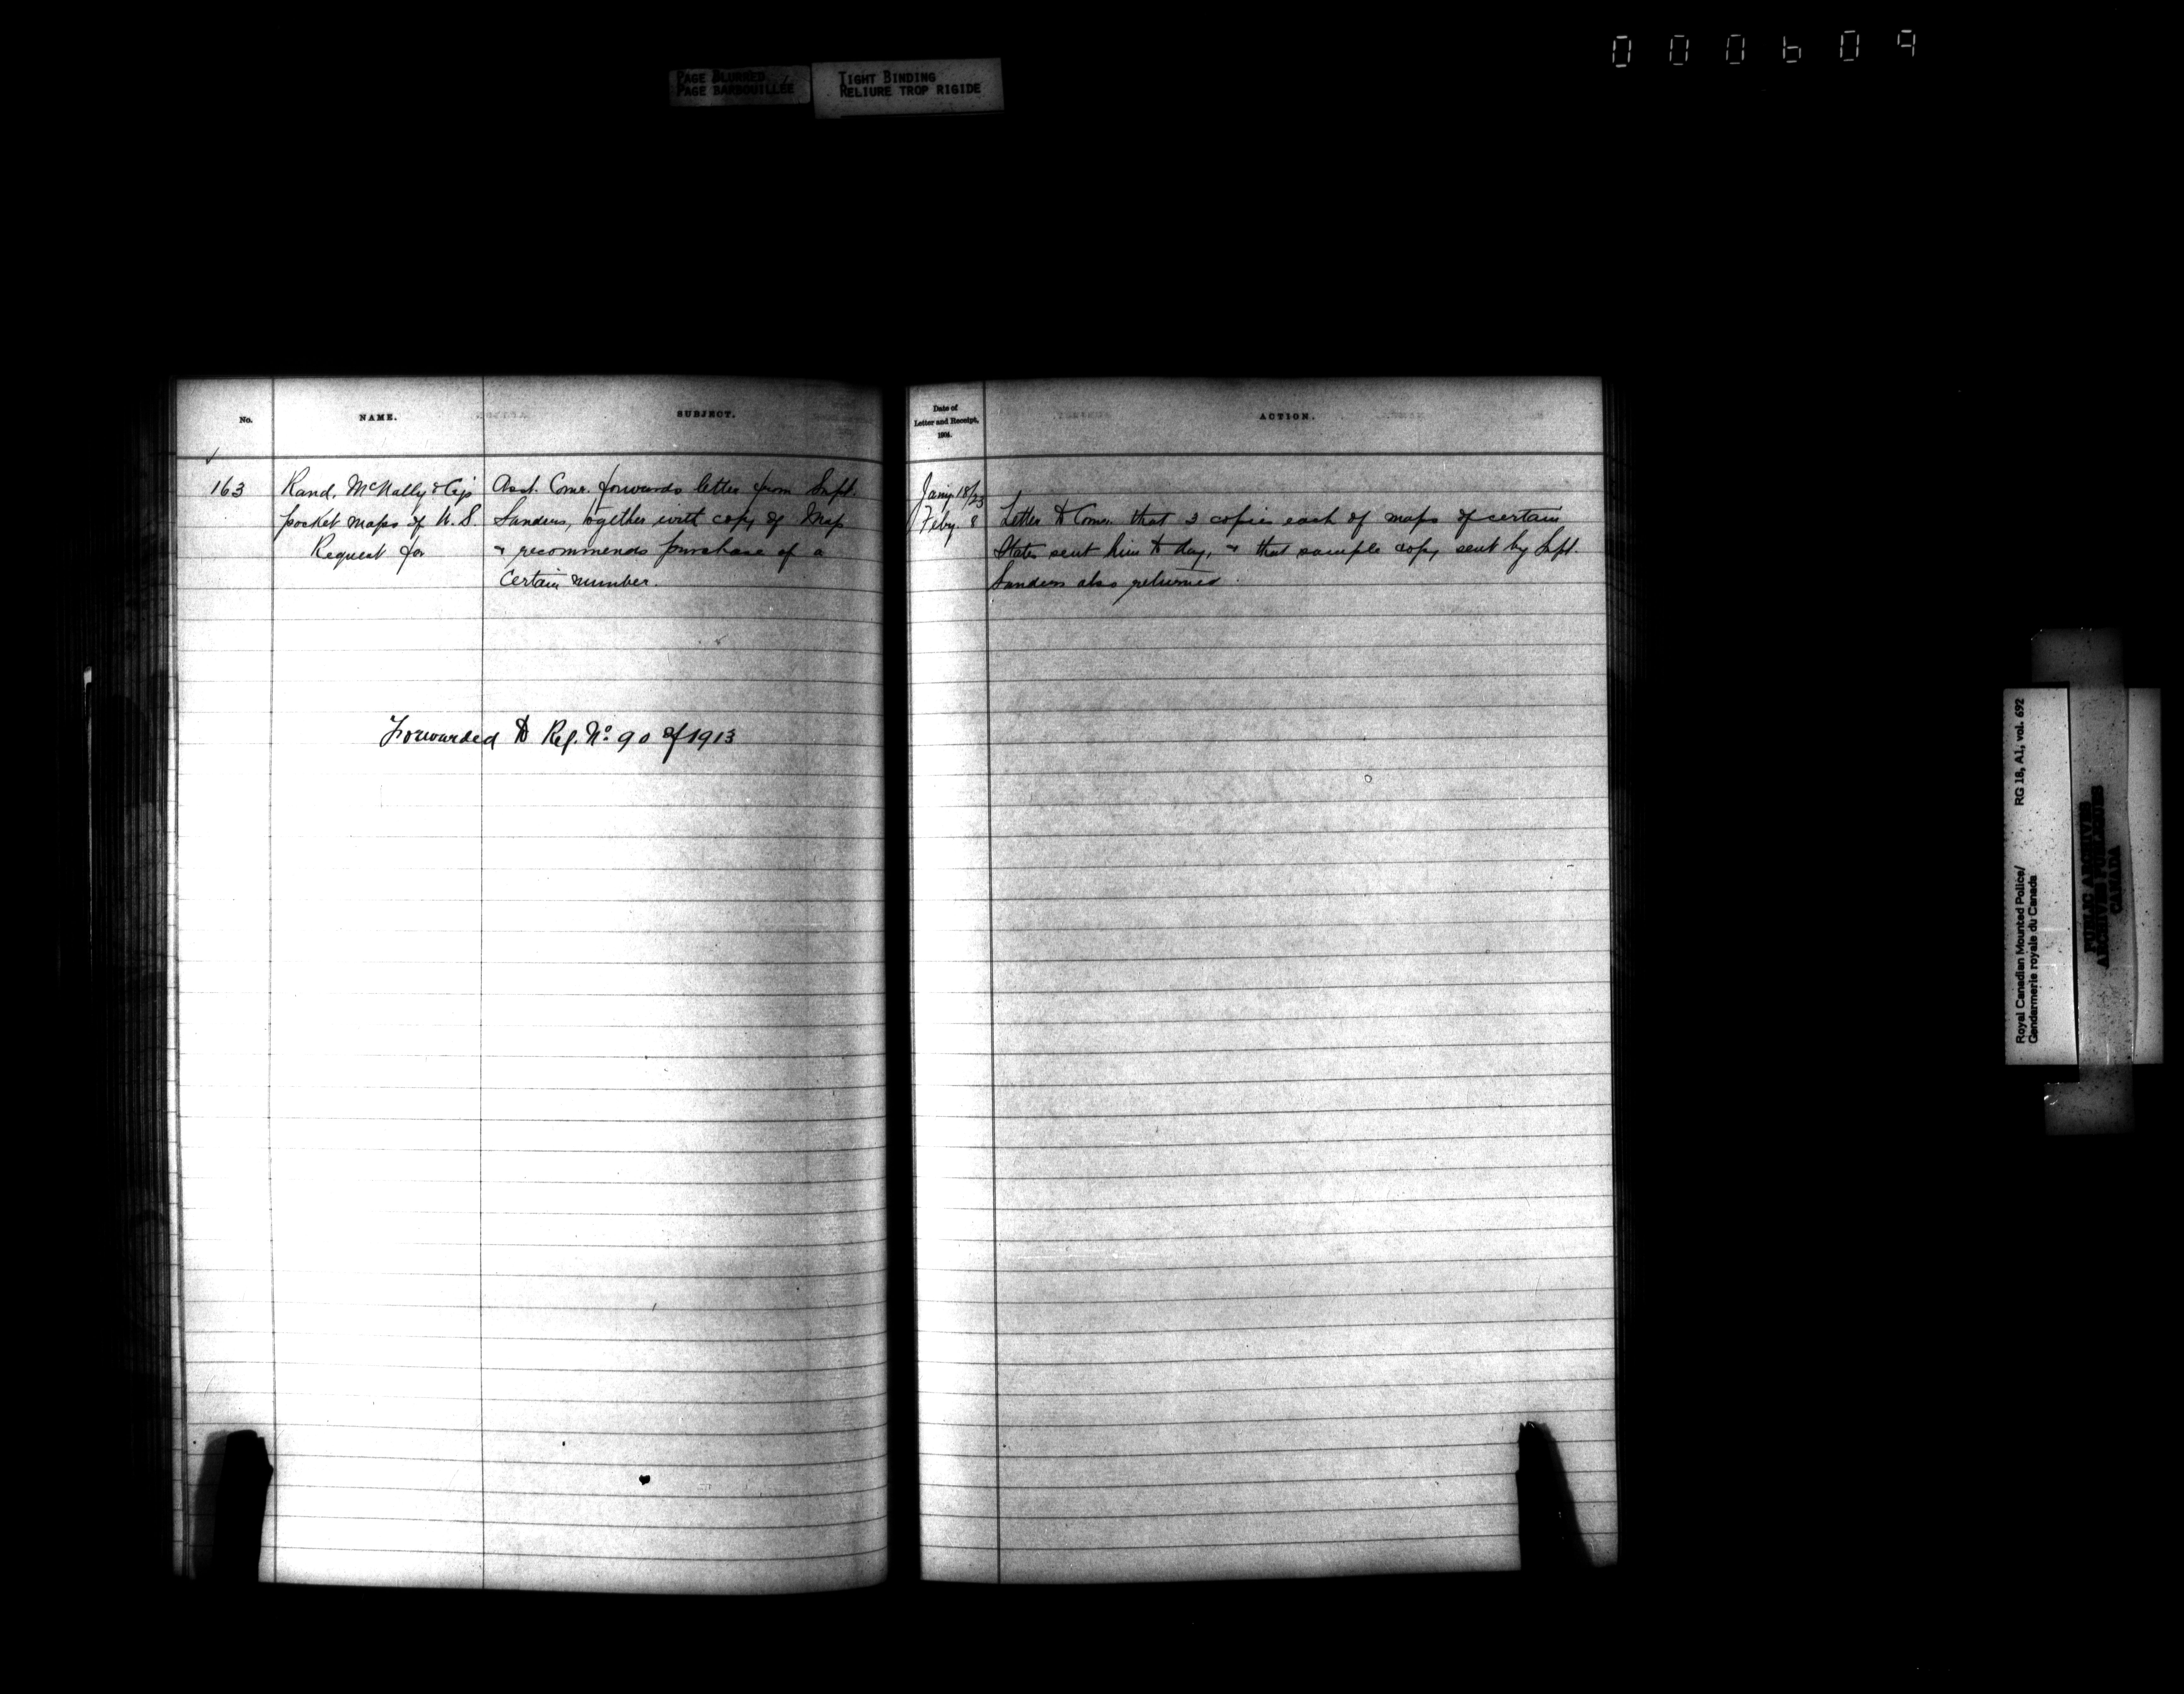 000609
PAGE BLURRED
PAGE BARBOUILLÉE
TIGHT BINDING
RELIURE TROP RIGIDE
No.
NAME.
SUBJECT.
163
Rand, McNally & Co's
pocket maps of U.S.
Request for
Asst. Comr. forwards letter from Supt.
Sanders, together with copy of Map
& recommends purchase of a
certain number.
Forwarded to Ref. No. 90 of 1913
Date of
Letter and Receipt,
1904.
ACTION.
Jany 18/23
Feby. 8
Letter to Comr. that 3 copies each of maps of certain
States sent him to day, & that sample copy sent by Supt.
Sanders also returned.
Royal Canadian Mounted Police/ RG 18, A1, vol. 692
Gendarmerie royale du Canada
PUBLIC ARCHIVES
ARCHIVES PUBLIQUES
CANADA